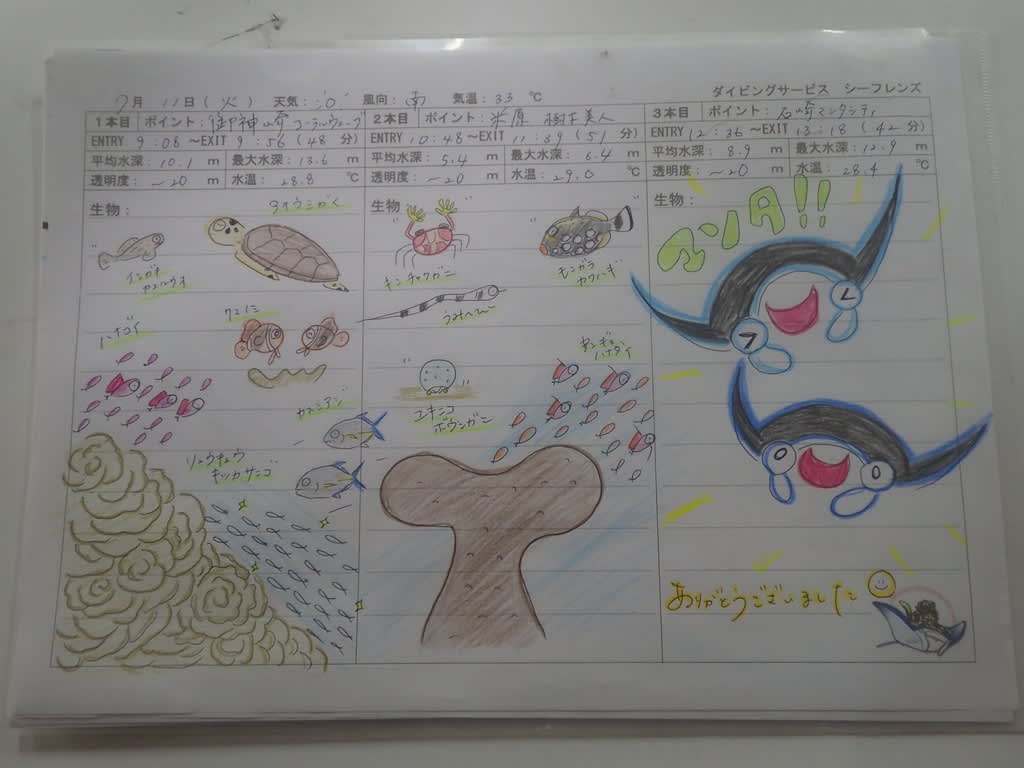 ダイビングサービス シーフレンズ
7月 11日(火) 天気: 風向: 南 気温: 33 ℃
1本目 ポイント: 御神崎コーラルウェーブ
ENTRY 9:08 ～EXIT 9:56 (48分)
平均水深: 10.1 m 最大水深: 13.6 m
透明度: ～20 m 水温: 28.8 ℃
生物:
アオウミガメ
ハナゴイ
クマノミ
カスミアジ
リュウキュウ
キッカサンゴ
2本目 ポイント: 米原 樹下美人
ENTRY 10:48 ～EXIT 11:39 (51分)
平均水深: 5.4 m 最大水深: 6.4 m
透明度: ～20 m 水温: 29.0 ℃
生物
キンチャクガニ
モンガラ
カワハギ
うみへび
キンギョ
ハナダイ
ユキンコ
ボウシガニ
3本目 ポイント: 石崎マンタシティ
ENTRY 12:36 ～EXIT 13:18 (42分)
平均水深: 8.9 m 最大水深: 12.9 m
透明度: ～20 m 水温: 28.4 ℃
生物:
マンタ!!
ありがとうございました